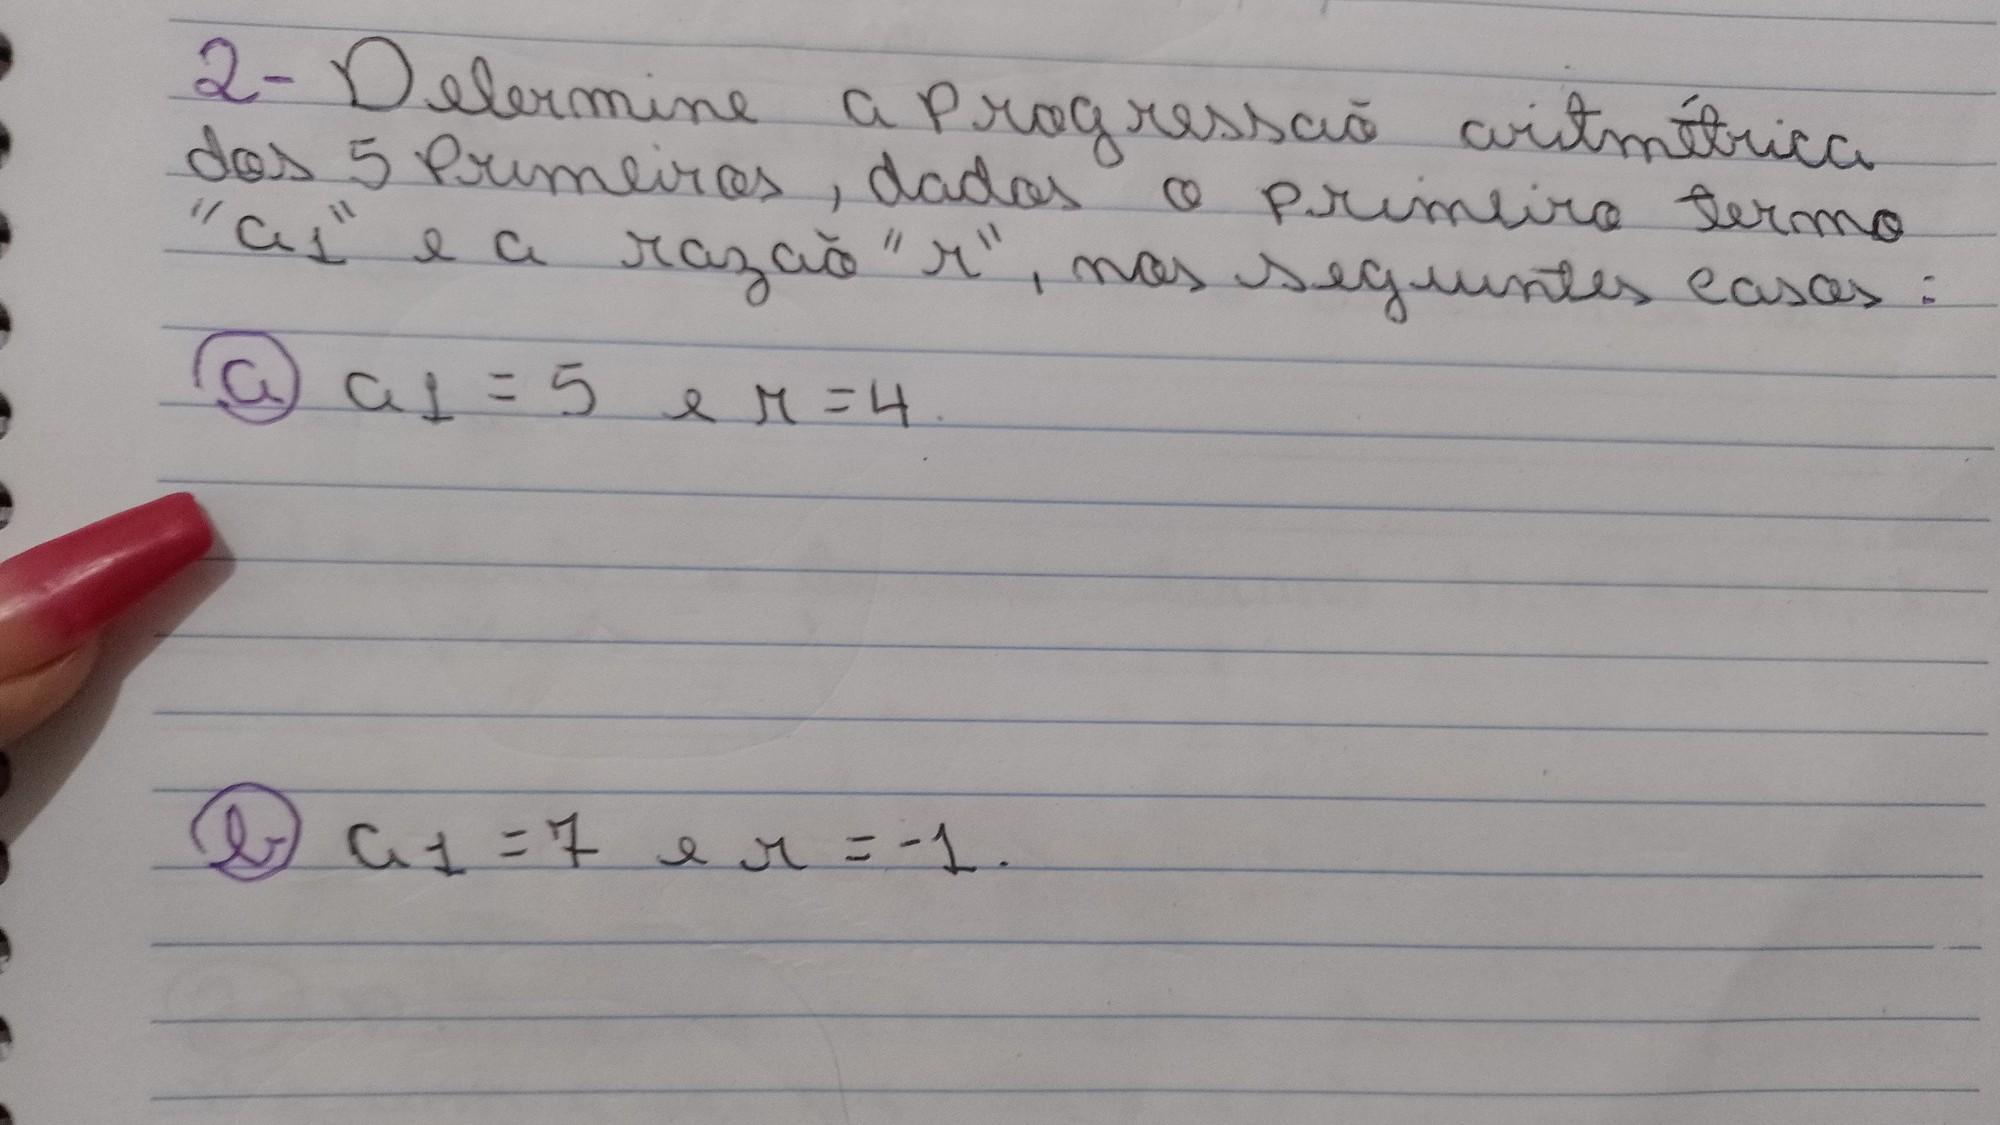 2- Determine a Progressão aritmétrica
dos 5 Primeiros, dados o primeiro termo
"a1" e a razão "r", nos seguintes casos:
a a1 = 5 e r = 4.
b a1 = 7 e r = -1.